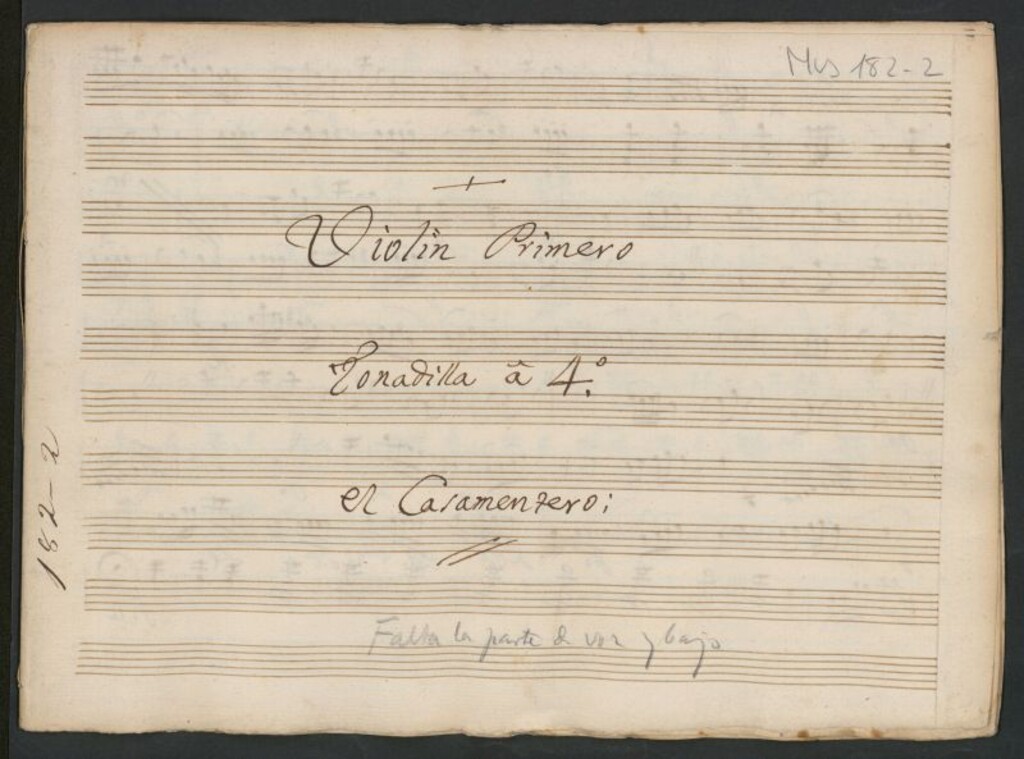 Mus 182-2
Violin Primero
Tonadilla â 4.º
el Casamentero;
182-2
Falta la parte de voz y bajo